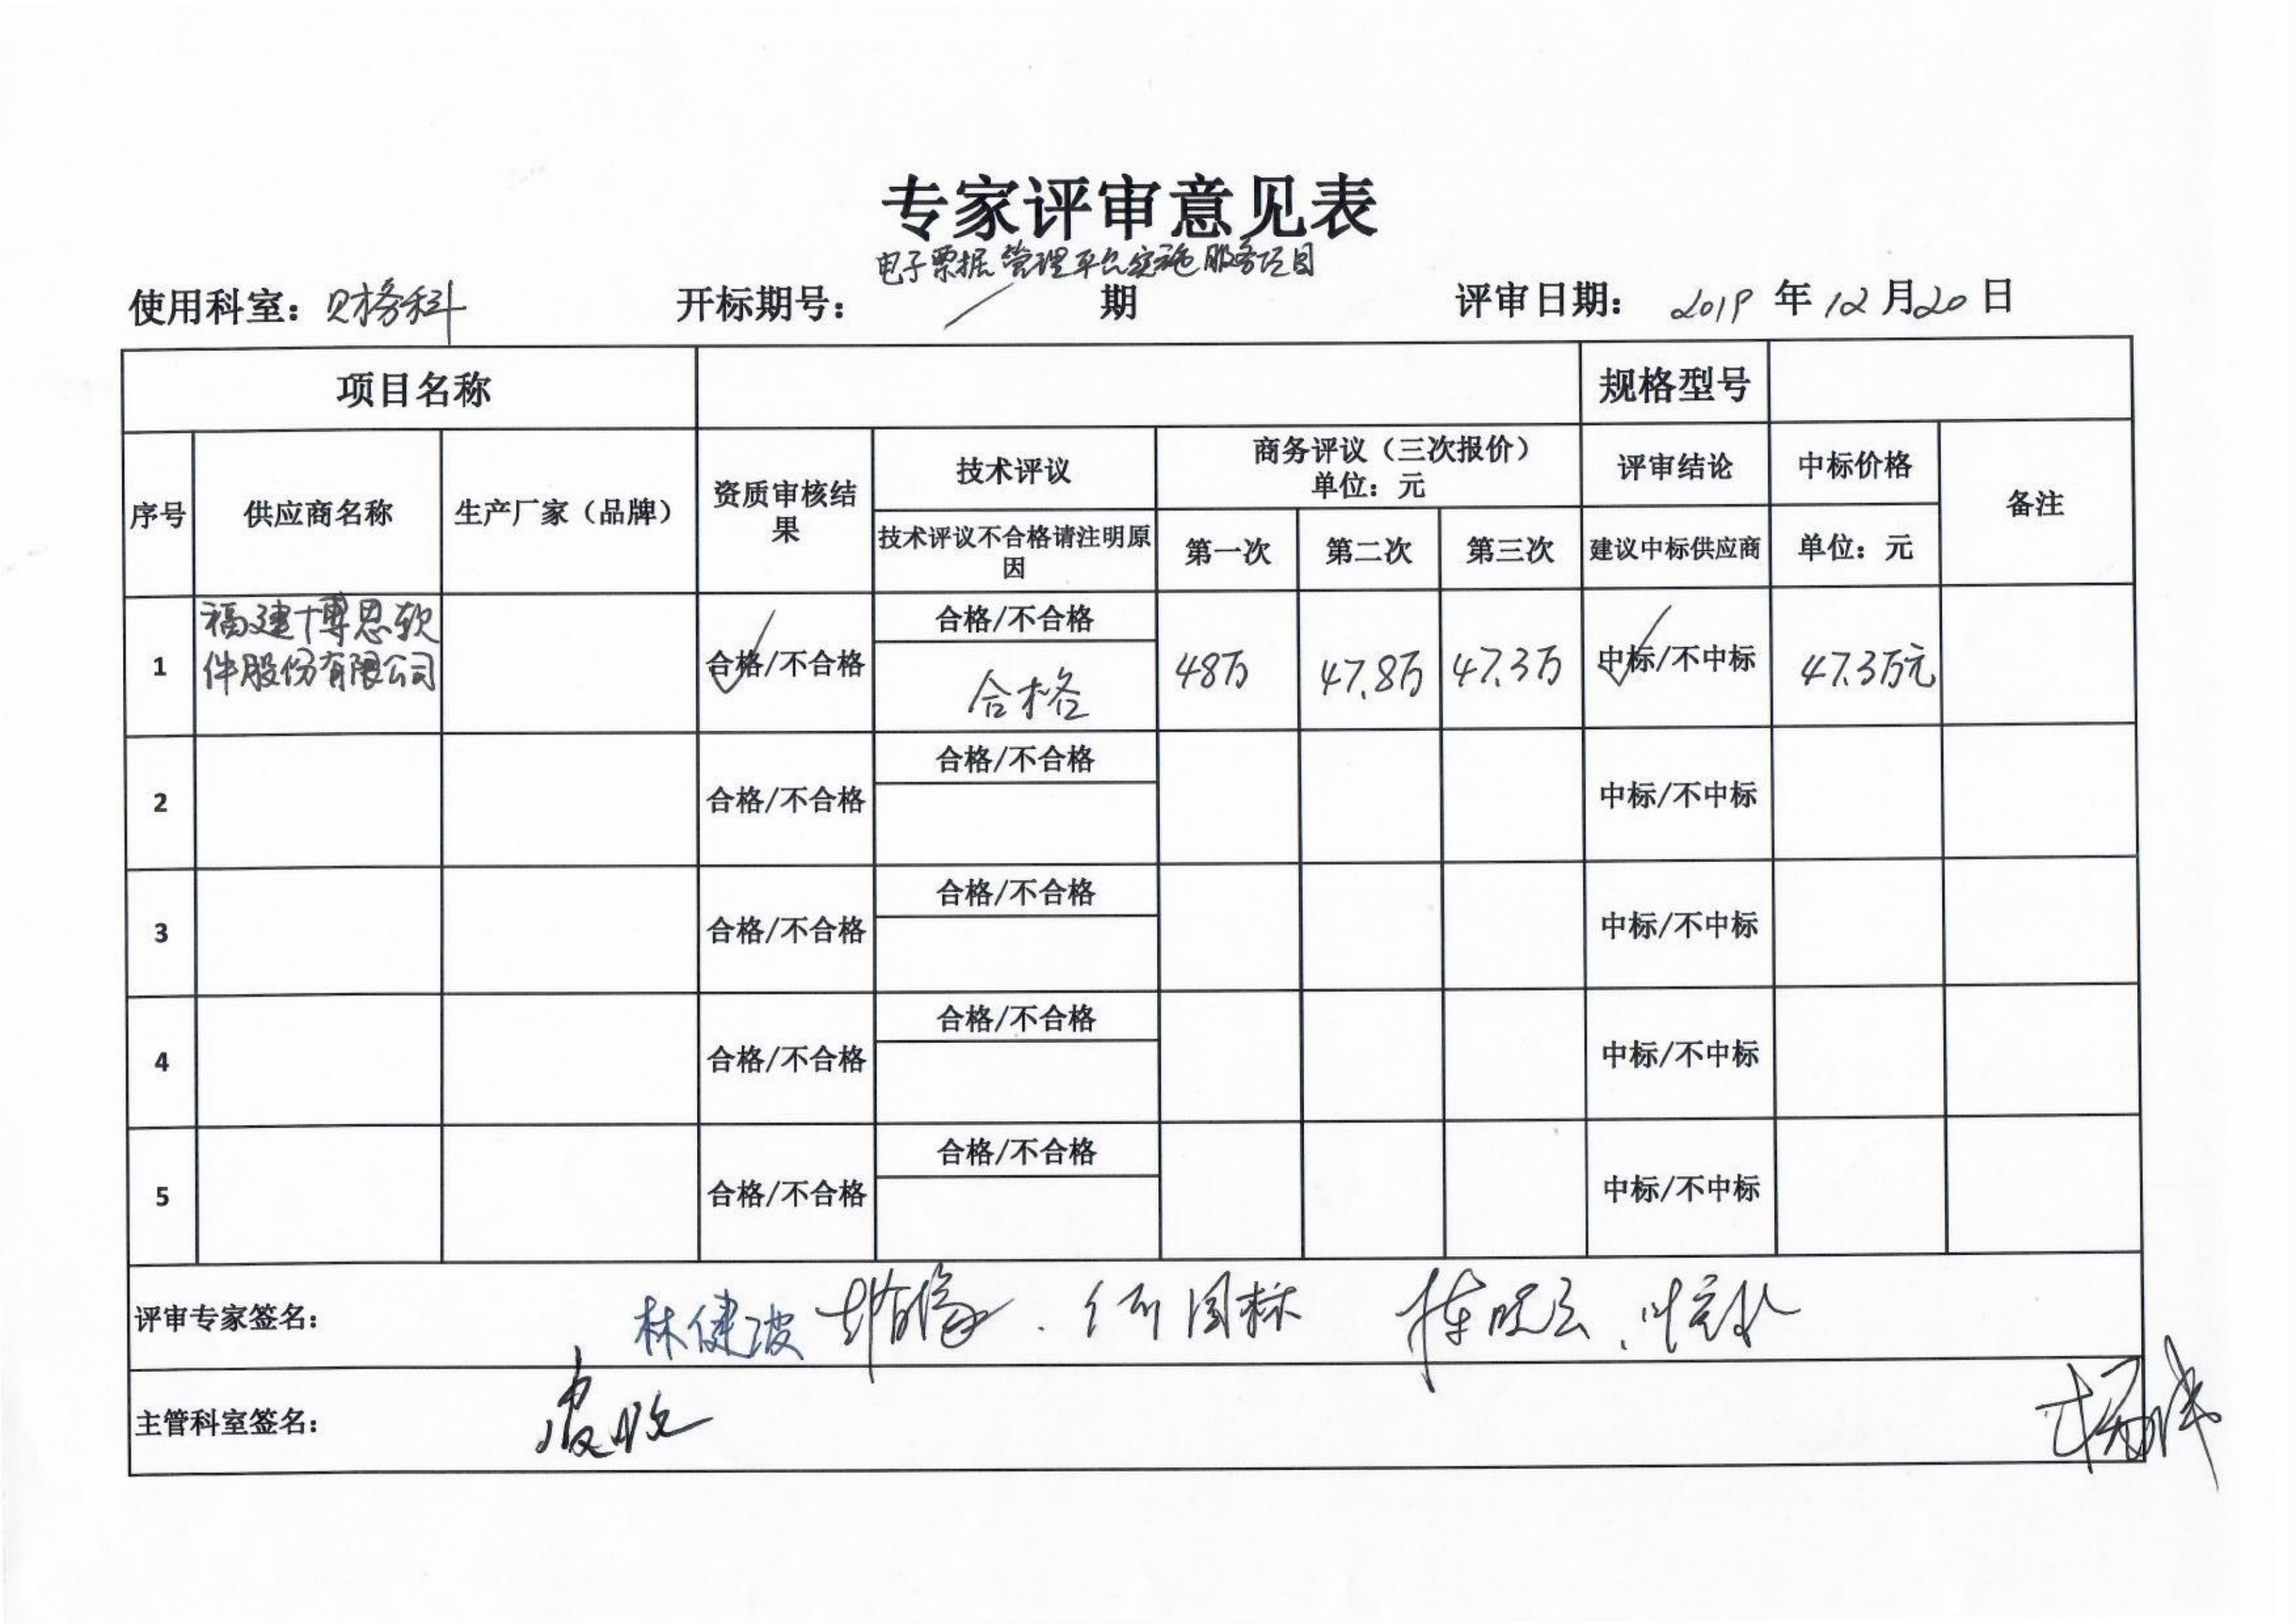 专家评审意见表
电子票据管理平台实施服务项目
使用科室：财务科 开标期号： / 期 评审日期： 2019 年 12 月 20 日
项目名称 规格型号
序号 供应商名称 生产厂家（品牌） 资质审核结果 技术评议 商务评议（三次报价）单位：元 评审结论 中标价格 备注
技术评议不合格请注明原因 第一次 第二次 第三次 建议中标供应商 单位：元
1 福建博思软件股份有限公司 合格/不合格 合格/不合格 合格 48万 47.8万 47.3万 中标/不中标 47.3万元
2 合格/不合格 合格/不合格 中标/不中标
3 合格/不合格 合格/不合格 中标/不中标
4 合格/不合格 合格/不合格 中标/不中标
5 合格/不合格 合格/不合格 中标/不中标
评审专家签名： 林健波 何国标
主管科室签名：